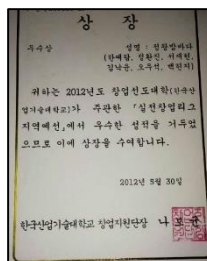 상 장
우수상
성명 : 정왕밤바다
(한예람, 장환진, 서세현,
김낙준, 오우석, 변현지)
귀하는 2012년도 창업선도대학(한국산
업기술대학교)가 주관한 「실전창업리그
지역예선」에서 우수한 성적을 거두었
으므로 이에 상장을 수여합니다.
2012년 5월 30일
한국산업기술대학교 창업지원단장 나보균